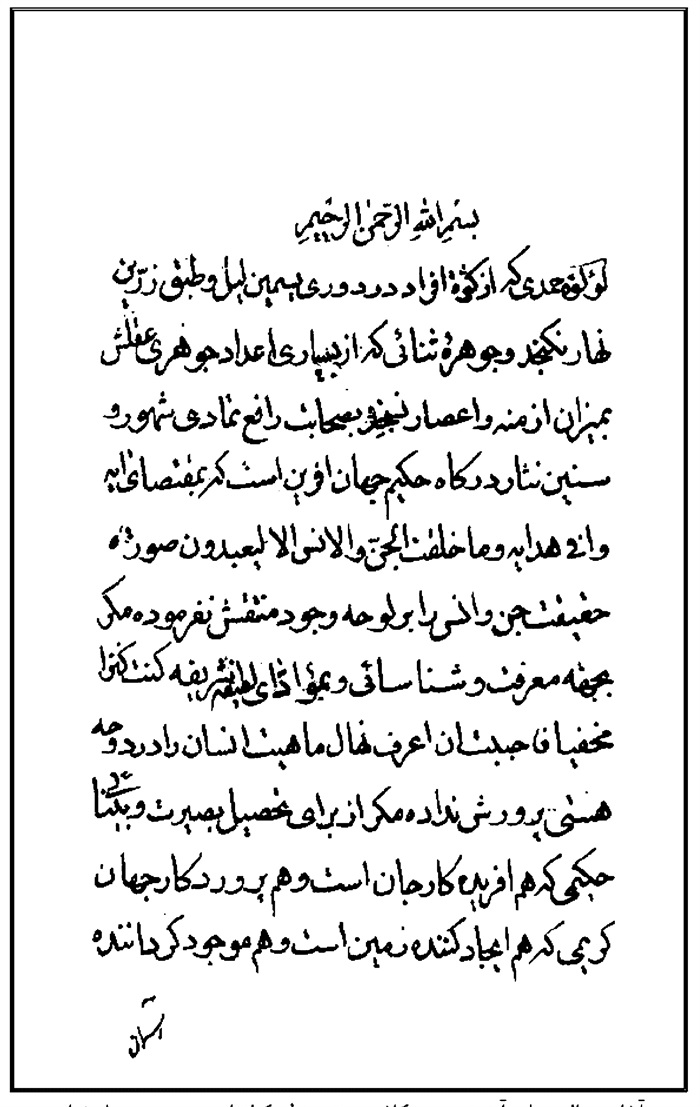 بسم الله الرحمن الرحیم
لؤلؤه حمدی که از کثرة افراد در دوری سیمین لیل و طبق زرین
نهار نکنجد و جوهرهٔ ثنائی که از بسیاری اعداد جوهری عقلش
بمیزان ازمنه و اعصار نسنجد رافع تمادی شهور و
سنین نثار درکاه حکیم جهان افرین است که بمقتضای ایه
وافی هدایه وما خلقت الجن والانس الا لیعبدون صورة
حقیقت جن وانس را بر لوحه وجود منتقش نفرموده مکر
بجهه معرفت و شناسائی و بمؤدای شریفه کنت کنزا
مخفیا فاحببت ان اعرف نهال ماهیت انسان را در دوحه
هستی پرورش نداده مکر از برای تحصیل بصیرت و بینائی
حکیمی که هم افریده کار جان است و هم پروردکار جهان
کریمی که هم ایجاد کننده زمین است و هم موجود کرداننده
اسمان